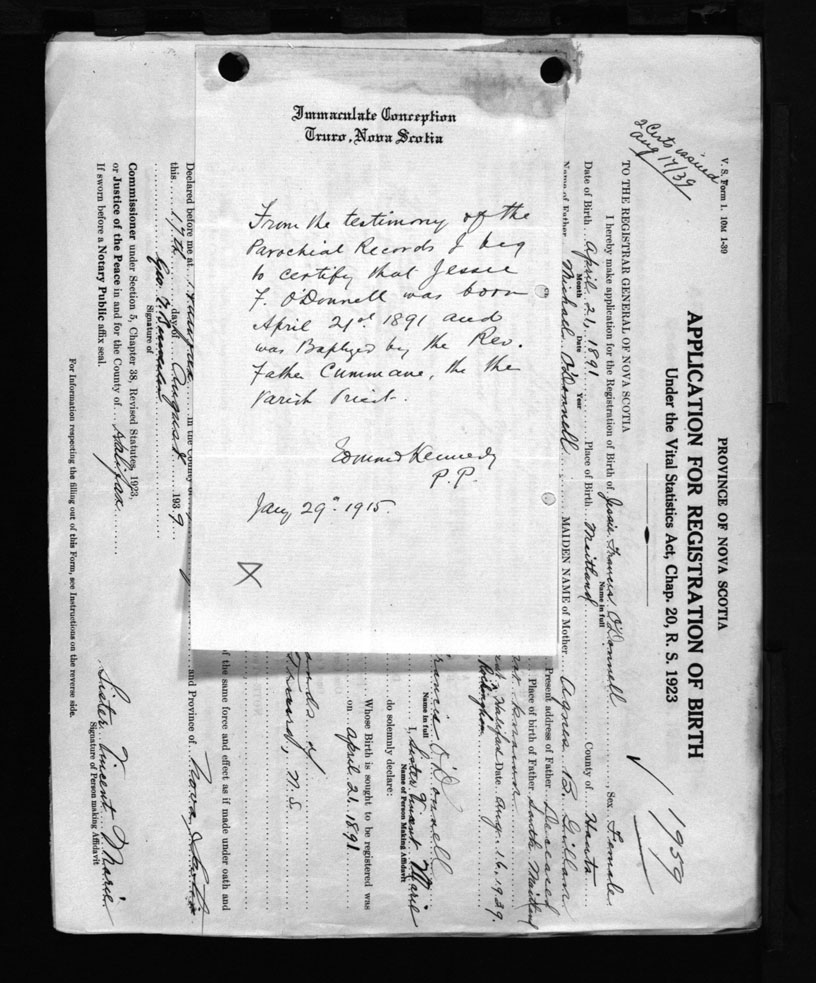 Immaculate Conception
Truro, Nova Scotia
From the testimony of the
Parochial Records I beg
to certify that Jessie
F. O'Donnell was born
April 21st 1891 and
was Baptized by the Rev.
Father Cummane, the the
Parish Priest.
Edward Kennedy
P. P.
Jany 29th 1915.
V. S. Form 1. 10M 1-39
2 Certs issued
Aug 17/39
PROVINCE OF NOVA SCOTIA
APPLICATION FOR REGISTRATION OF BIRTH
Under the Vital Statistics Act, Chap. 20, R. S. 1923
1959
TO THE REGISTRAR GENERAL OF NOVA SCOTIA
I hereby make application for the Registration of Birth of Jessie Francis O'Donnell Sex Female
Name in full
Date of Birth April 21, 1891 Place of Birth Maitland County of Hants
Month Date Year
Name of Father Michael O'Donnell MAIDEN NAME of Mother Agnes B.
Present address of Father Deceased
Place of birth of Father South Maitland
Halifax Date Aug. 16, 1939.
Rockingham
Francis O'Donnell
Name in full
I, Sister Vincent Marie
Name of Person Making Affidavit
do solemnly declare:
Whose Birth is sought to be registered was
on April 21, 1891
N.S.
of the same force and effect as if made under oath and
Declared before me at in the County of and Province of Nova Scotia
this 17th day of August 1939
Signature of
Commissioner under Section 5, Chapter 38, Revised Statutes, 1923,
or Justice of the Peace in and for the County of Halifax
If sworn before a Notary Public affix seal.
Sister Vincent Marie
Signature of Person making Affidavit
For Information respecting the filling out of this Form, see Instructions on the reverse side.